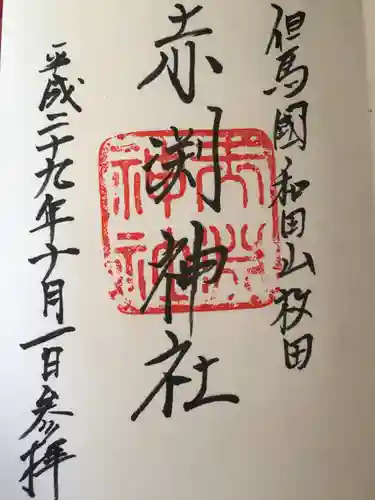 但馬國和田山牧田
赤渕神社
平成二十九年十月一日参拝